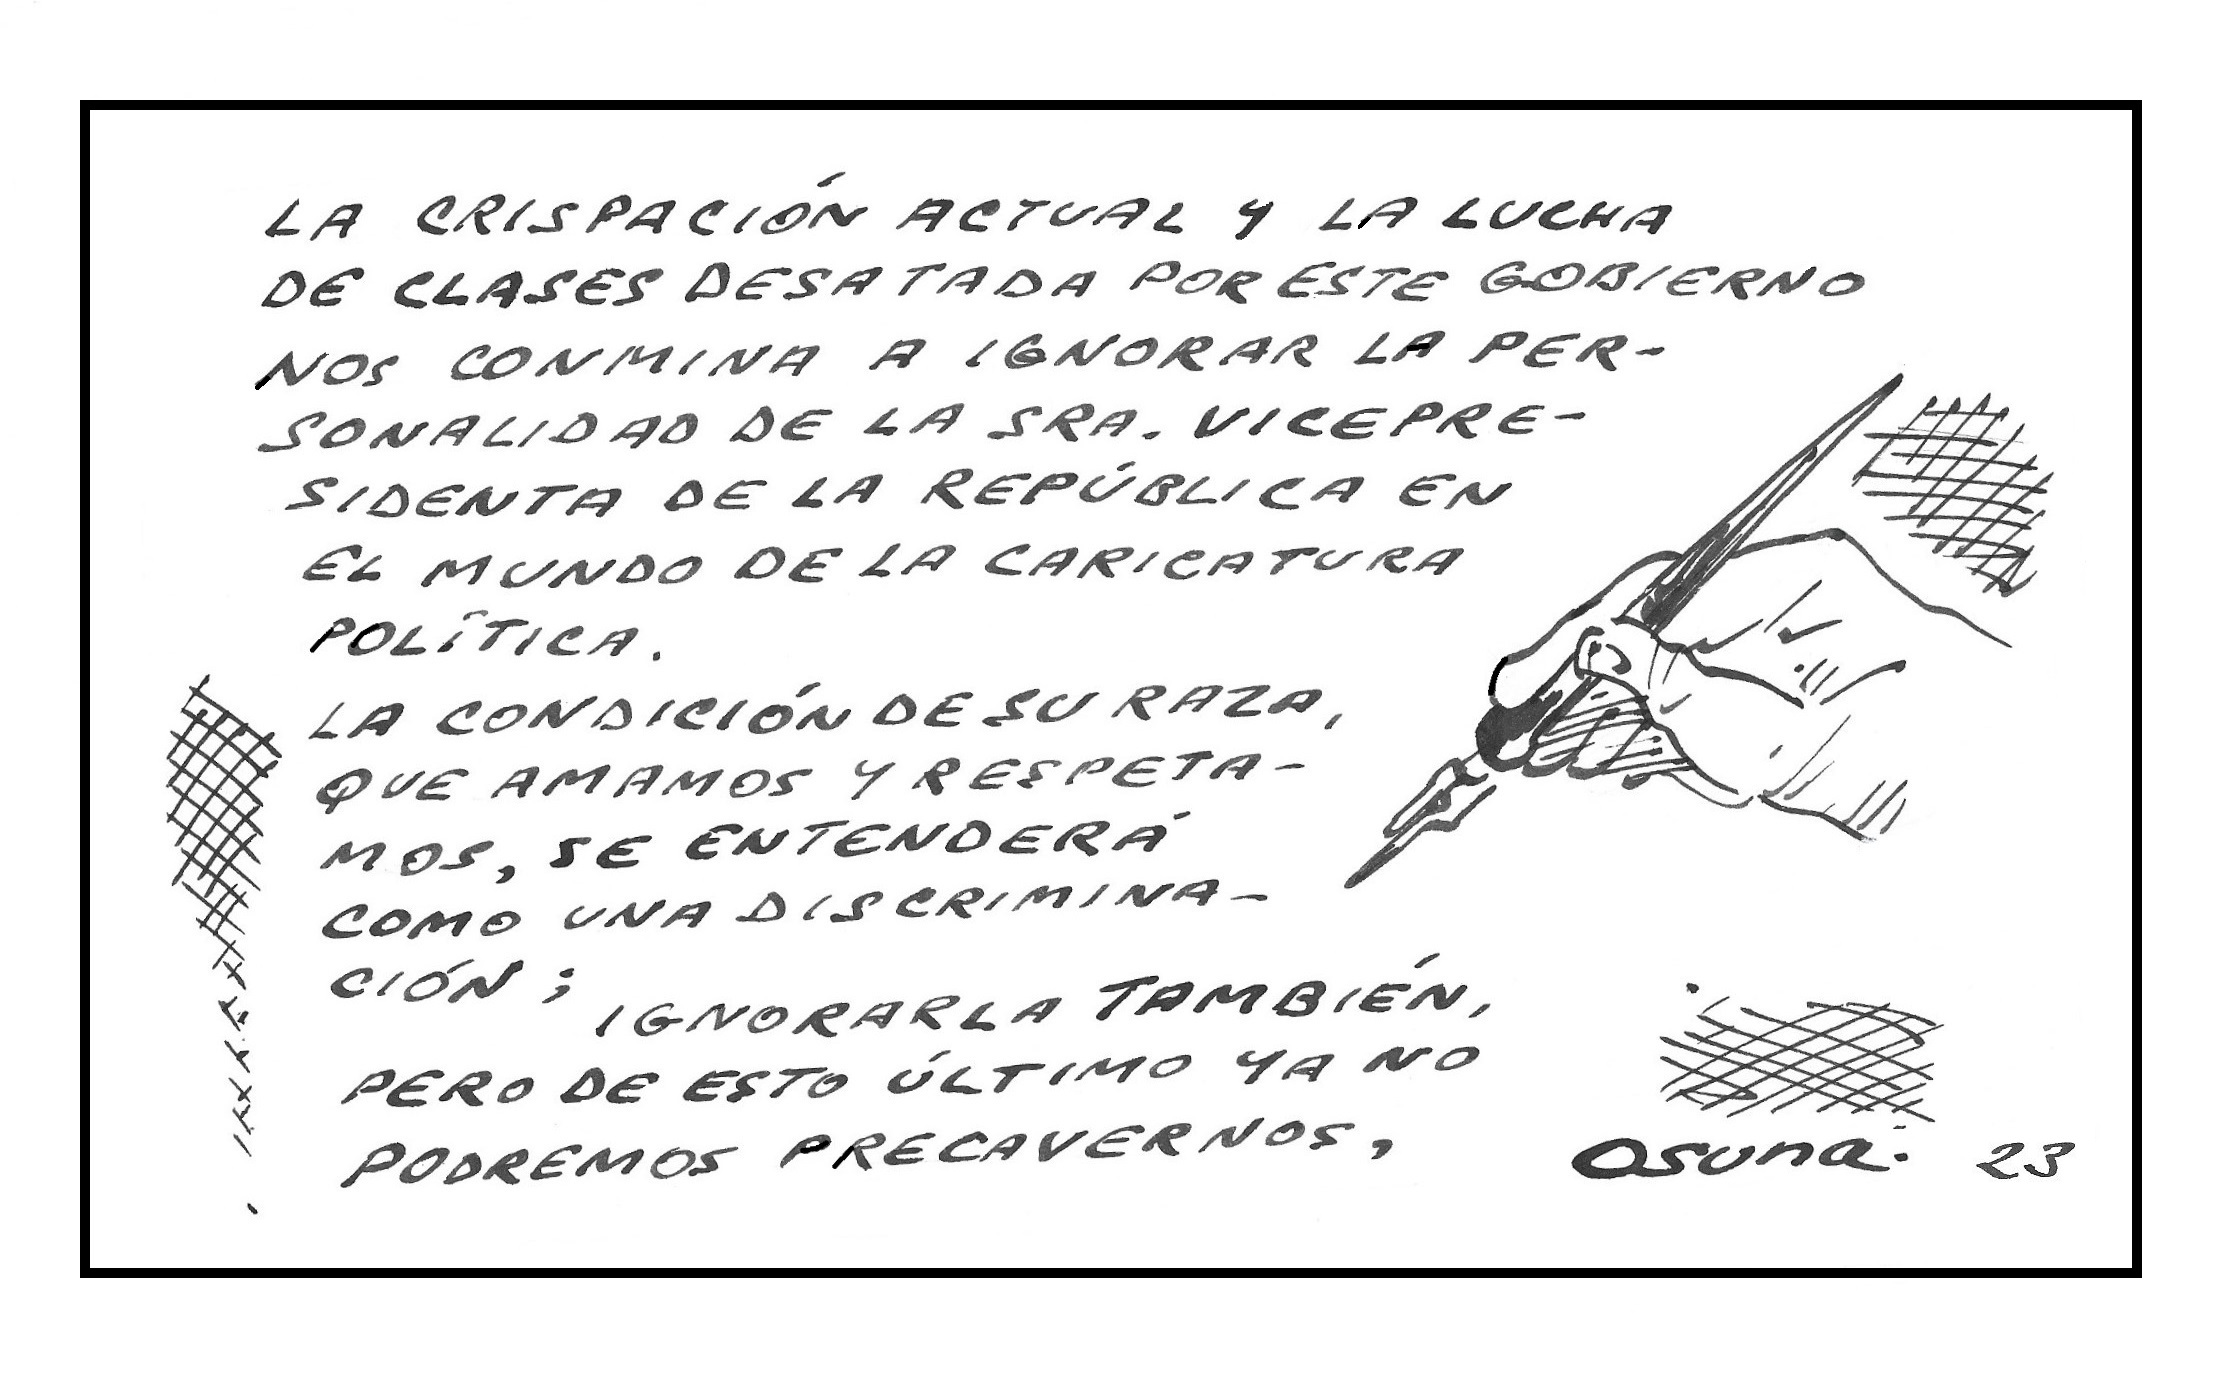 LA CRISPACIÓN ACTUAL Y LA LUCHA
DE CLASES DESATADA POR ESTE GOBIERNO
NOS CONMINA A IGNORAR LA PER-
SONALIDAD DE LA SRA. VICEPRE-
SIDENTA DE LA REPÚBLICA EN
EL MUNDO DE LA CARICATURA
POLÍTICA.
LA CONDICIÓN DE SU RAZA,
QUE AMAMOS Y RESPETA-
MOS, SE ENTENDERÁ
COMO UNA DISCRIMINA-
CIÓN;
IGNORARLA TAMBIÉN,
PERO DE ESTO ÚLTIMO YA NO
PODREMOS PRECAVERNOS,
Osuna. 23